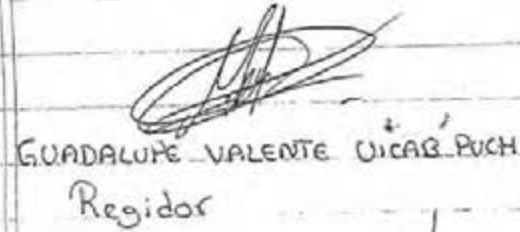 GUADALUPE VALENTE UICAB PUCH
Regidor